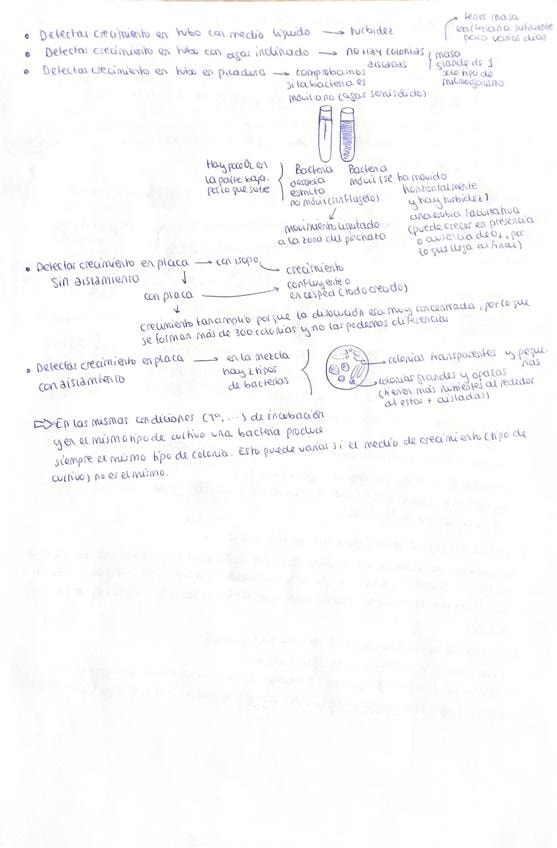 • Detectar crecimiento en tubo con medio líquido → turbidez
tener masa
bacteriana suficiente
para varios días
• Detectar crecimiento en tubo con agar inclinado → no hay colonias
aisladas
masa
grande de 1
solo tipo de
microorganismo
• Detectar crecimiento en tubo en picadura → comprobamos
si la bacteria es
móvil o no (agar semisólido)
Hay poco O2 en
la parte baja,
por lo que sube
Bacteria
aerobia
estricta
no móvil (sin flagelo)
↓
movimiento limitado
a la zona del pinchazo
Bacteria
móvil (se ha movido
horizontalmente
y hay turbidez)
anaerobia facultativa
(puede crecer en presencia
o ausencia de O2, por
lo que llega al final)
• Detectar crecimiento en placa → con isopo
sin aislamiento
con placa
→ crecimiento
confluente o
en césped (todo crecido)
crecimiento tan amplio porque la disolución era muy concentrada, por lo que
se forman más de 300 colonias y no las podemos diferenciar
• Detectar crecimiento en placa → en la mezcla
con aislamiento
hay 2 tipos
de bacterias
colonias transparentes y peque-
ñas
colonias grandes y opacas
(tienen más nutrientes alrededor
al estar + aisladas)
⇒ En las mismas condiciones (Tª, ...) de incubación
y en el mismo tipo de cultivo una bacteria produce
siempre el mismo tipo de colonia. Esto puede variar si el medio de crecimiento (tipo de
cultivo) no es el mismo.